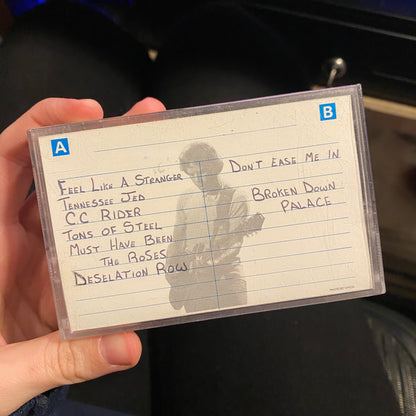 A
B
FEEL LIKE A STRANGER
TENNESSEE JED
C.C. RIDER
TONS OF STEEL
MUST HAVE BEEN
THE ROSES
DESELATION ROW
DON'T EASE ME IN
BROKEN DOWN
PALACE